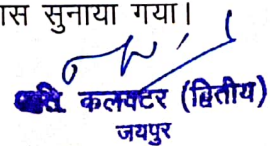 ास सुनाया गया।
अति कलक्टर (द्वितीय)
जयपुर